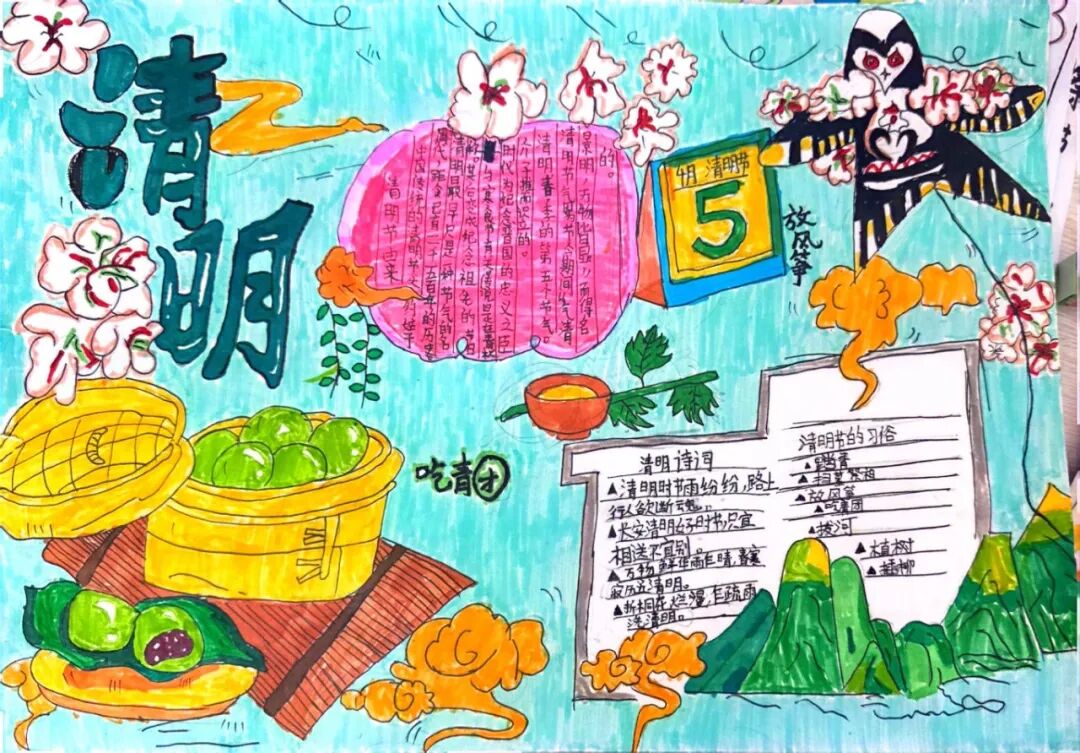 清明
清明节由来
中国传统的清明节大约始于
周代，距今已有二千五百年的历史
清明最早只是一种节气的名
称，其变成纪念祖先的节日
与寒食节有关。传说是在春秋
时代为纪念晋国的忠义之臣
介子推而设立的。
清明春季的第五个节气。
清明节气因为节令期间"气清
景明、万物皆显"而得名
的。
4月 清明节
5
放风筝
吃青团
清明诗词
▲清明时节雨纷纷，路上
行人欲断魂。
▲长安清明好时节只宜
相送不宜别
▲万物
寂历近清明。
▲拆桐花烂漫，乍疏雨
洗清明。
清明节的习俗
▲踏青
▲扫墓祭祖
▲放风筝
▲吃青团
▲拔河
▲植树
▲插柳